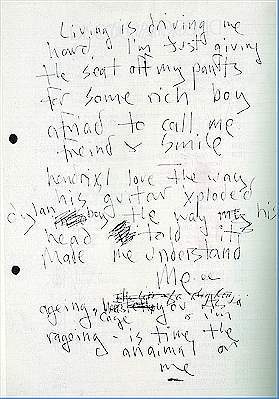 Living is driving me
hard I'm just giving
the seat off my pants
for some rich boy
afriad to call me
freind & smile
hendrix I love the way
his guitar xploded
dylan boy the way his
head told it
made me understand
Me
ageing,
cage or a
rageing - is time the
anaimal or
me